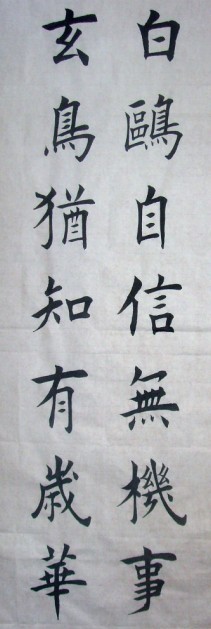 白鷗自信無機事
玄鳥猶知有歳華